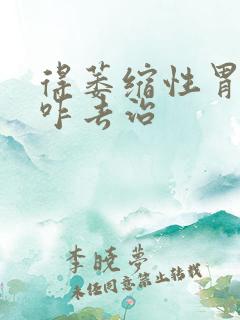 得萎缩性胃
咋去治
李晓梦
未经同意禁止转载